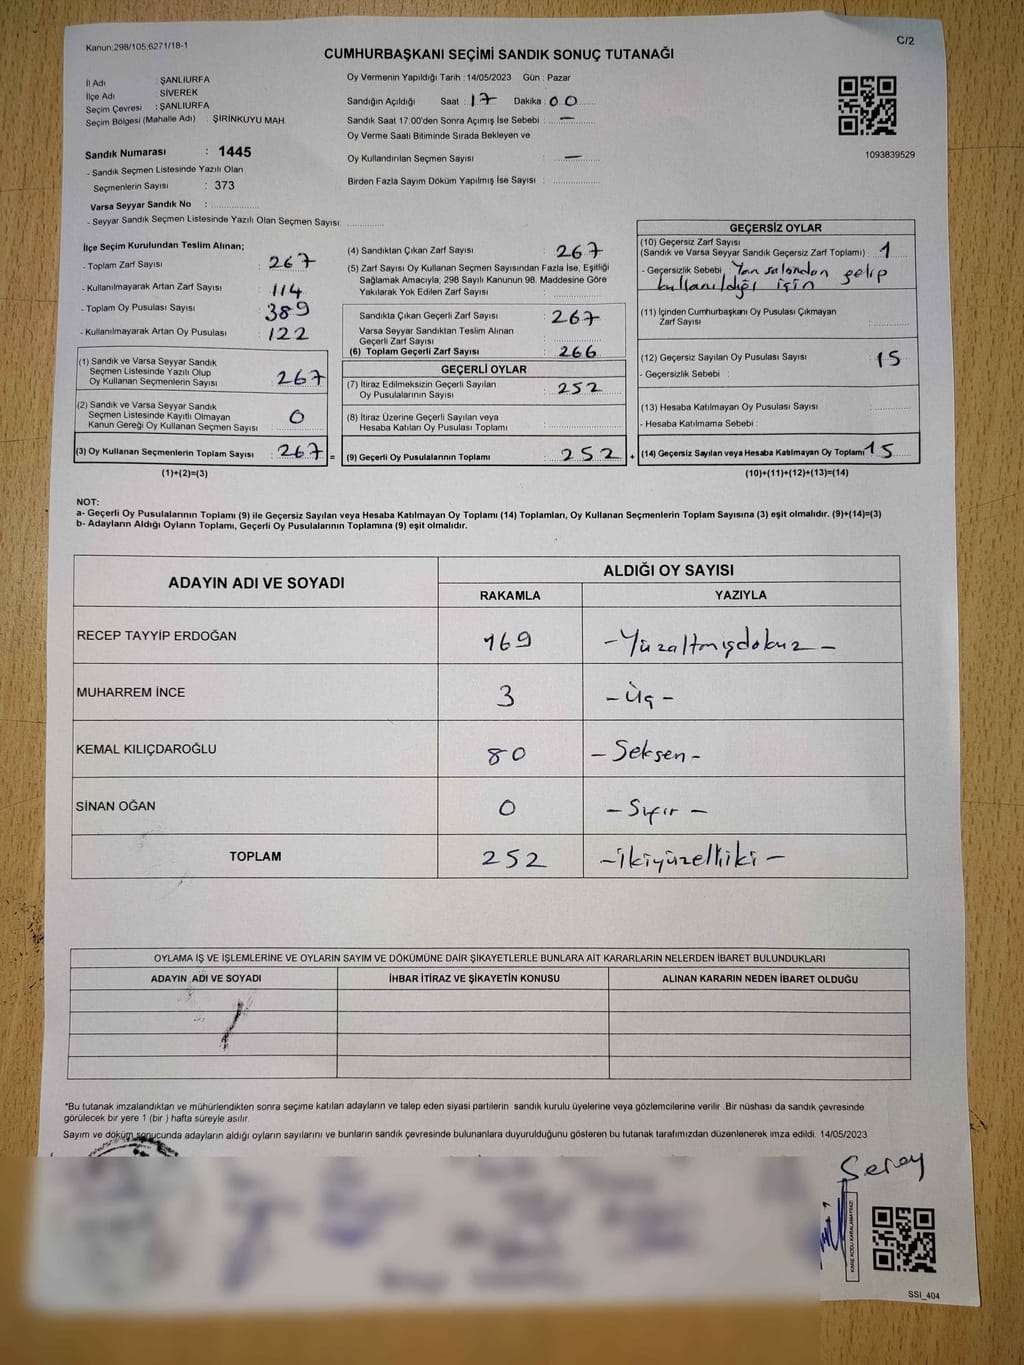 Kanun:298/105;6271/18-1
C/2
CUMHURBAŞKANI SEÇİMİ SANDIK SONUÇ TUTANAĞI
İl Adı : ŞANLIURFA
İlçe Adı : SİVEREK
Seçim Çevresi : ŞANLIURFA
Seçim Bölgesi (Mahalle Adı) : ŞİRİNKUYU MAH.
Sandık Numarası : 1445
- Sandık Seçmen Listesinde Yazılı Olan
Seçmenlerin Sayısı : 373
Varsa Seyyar Sandık No :
- Seyyar Sandık Seçmen Listesinde Yazılı Olan Seçmen Sayısı:
Oy Vermenin Yapıldığı Tarih : 14/05/2023 Gün : Pazar
Sandığın Açıldığı Saat : 17 Dakika : 00
Sandık Saat 17:00'den Sonra Açımış İse Sebebi : —
Oy Verme Saati Bitiminde Sırada Bekleyen ve
Oy Kullandırılan Seçmen Sayısı : —
Birden Fazla Sayım Döküm Yapılmış İse Sayısı :
1093839529
İlçe Seçim Kurulundan Teslim Alınan;
- Toplam Zarf Sayısı : 267
- Kullanılmayarak Artan Zarf Sayısı : 114
- Toplam Oy Pusulası Sayısı : 389
- Kullanılmayarak Artan Oy Pusulası : 122
(1) Sandık ve Varsa Seyyar Sandık
Seçmen Listesinde Yazılı Olup
Oy Kullanan Seçmenlerin Sayısı : 267
(2) Sandık ve Varsa Seyyar Sandık
Seçmen Listesinde Kayıtlı Olmayan
Kanun Gereği Oy Kullanan Seçmen Sayısı : 0
(3) Oy Kullanan Seçmenlerin Toplam Sayısı : 267 =
(1)+(2)=(3)
(4) Sandıktan Çıkan Zarf Sayısı : 267
(5) Zarf Sayısı Oy Kullanan Seçmen Sayısından Fazla İse, Eşitliği
Sağlamak Amacıyla; 298 Sayılı Kanunun 98. Maddesine Göre
Yakılarak Yok Edilen Zarf Sayısı :
Sandıkta Çıkan Geçerli Zarf Sayısı : 267
Varsa Seyyar Sandıktan Teslim Alınan
Geçerli Zarf Sayısı :
(6) Toplam Geçerli Zarf Sayısı : 266
GEÇERLİ OYLAR
(7) İtiraz Edilmeksizin Geçerli Sayılan
Oy Pusulalarının Sayısı : 252
(8) İtiraz Üzerine Geçerli Sayılan veya
Hesaba Katılan Oy Pusulası Toplamı :
(9) Geçerli Oy Pusulalarının Toplamı : 252 +
GEÇERSİZ OYLAR
(10) Geçersiz Zarf Sayısı
(Sandık ve Varsa Seyyar Sandık Geçersiz Zarf Toplamı) : 1
- Geçersizlik Sebebi : Yan salondan gelip
kullanıldığı için
(11) İçinden Cumhurbaşkanı Oy Pusulası Çıkmayan
Zarf Sayısı :
(12) Geçersiz Sayılan Oy Pusulası Sayısı : 15
- Geçersizlik Sebebi :
(13) Hesaba Katılmayan Oy Pusulası Sayısı :
- Hesaba Katılmama Sebebi :
(14) Geçersiz Sayılan veya Hesaba Katılmayan Oy Toplamı : 15
(10)+(11)+(12)+(13)=(14)
NOT:
a- Geçerli Oy Pusulalarının Toplamı (9) ile Geçersiz Sayılan veya Hesaba Katılmayan Oy Toplamı (14) Toplamları, Oy Kullanan Seçmenlerin Toplam Sayısına (3) eşit olmalıdır. (9)+(14)=(3)
b- Adayların Aldığı Oyların Toplamı, Geçerli Oy Pusulalarının Toplamına (9) eşit olmalıdır.
ADAYIN ADI VE SOYADI
ALDIĞI OY SAYISI
RAKAMLA YAZIYLA
RECEP TAYYİP ERDOĞAN 169 -Yüzaltmışdokuz-
MUHARREM İNCE 3 -Üç-
KEMAL KILIÇDAROĞLU 80 -Seksen-
SİNAN OĞAN 0 -Sıfır-
TOPLAM 252 -İkiyüzelliiki-
OYLAMA İŞ VE İŞLEMLERİNE VE OYLARIN SAYIM VE DÖKÜMÜNE DAİR ŞİKAYETLERLE BUNLARA AİT KARARLARIN NELERDEN İBARET BULUNDUKLARI
ADAYIN ADI VE SOYADI İHBAR İTİRAZ VE ŞİKAYETİN KONUSU ALINAN KARARIN NEDEN İBARET OLDUĞU
*Bu tutanak imzalandıktan ve mühürlendikten sonra seçime katılan adayların ve talep eden siyasi partilerin sandık kurulu üyelerine veya gözlemcilerine verilir. Bir nüshası da sandık çevresinde
görülecek bir yere 1 (bir) hafta süreyle asılır.
Sayım ve döküm sonucunda adayların aldığı oyların sayılarını ve bunların sandık çevresinde bulunanlara duyurulduğunu gösteren bu tutanak tarafımızdan düzenlenerek imza edildi. 14/05/2023
KARE KODU KARALAMAYINIZ!
SSI_404